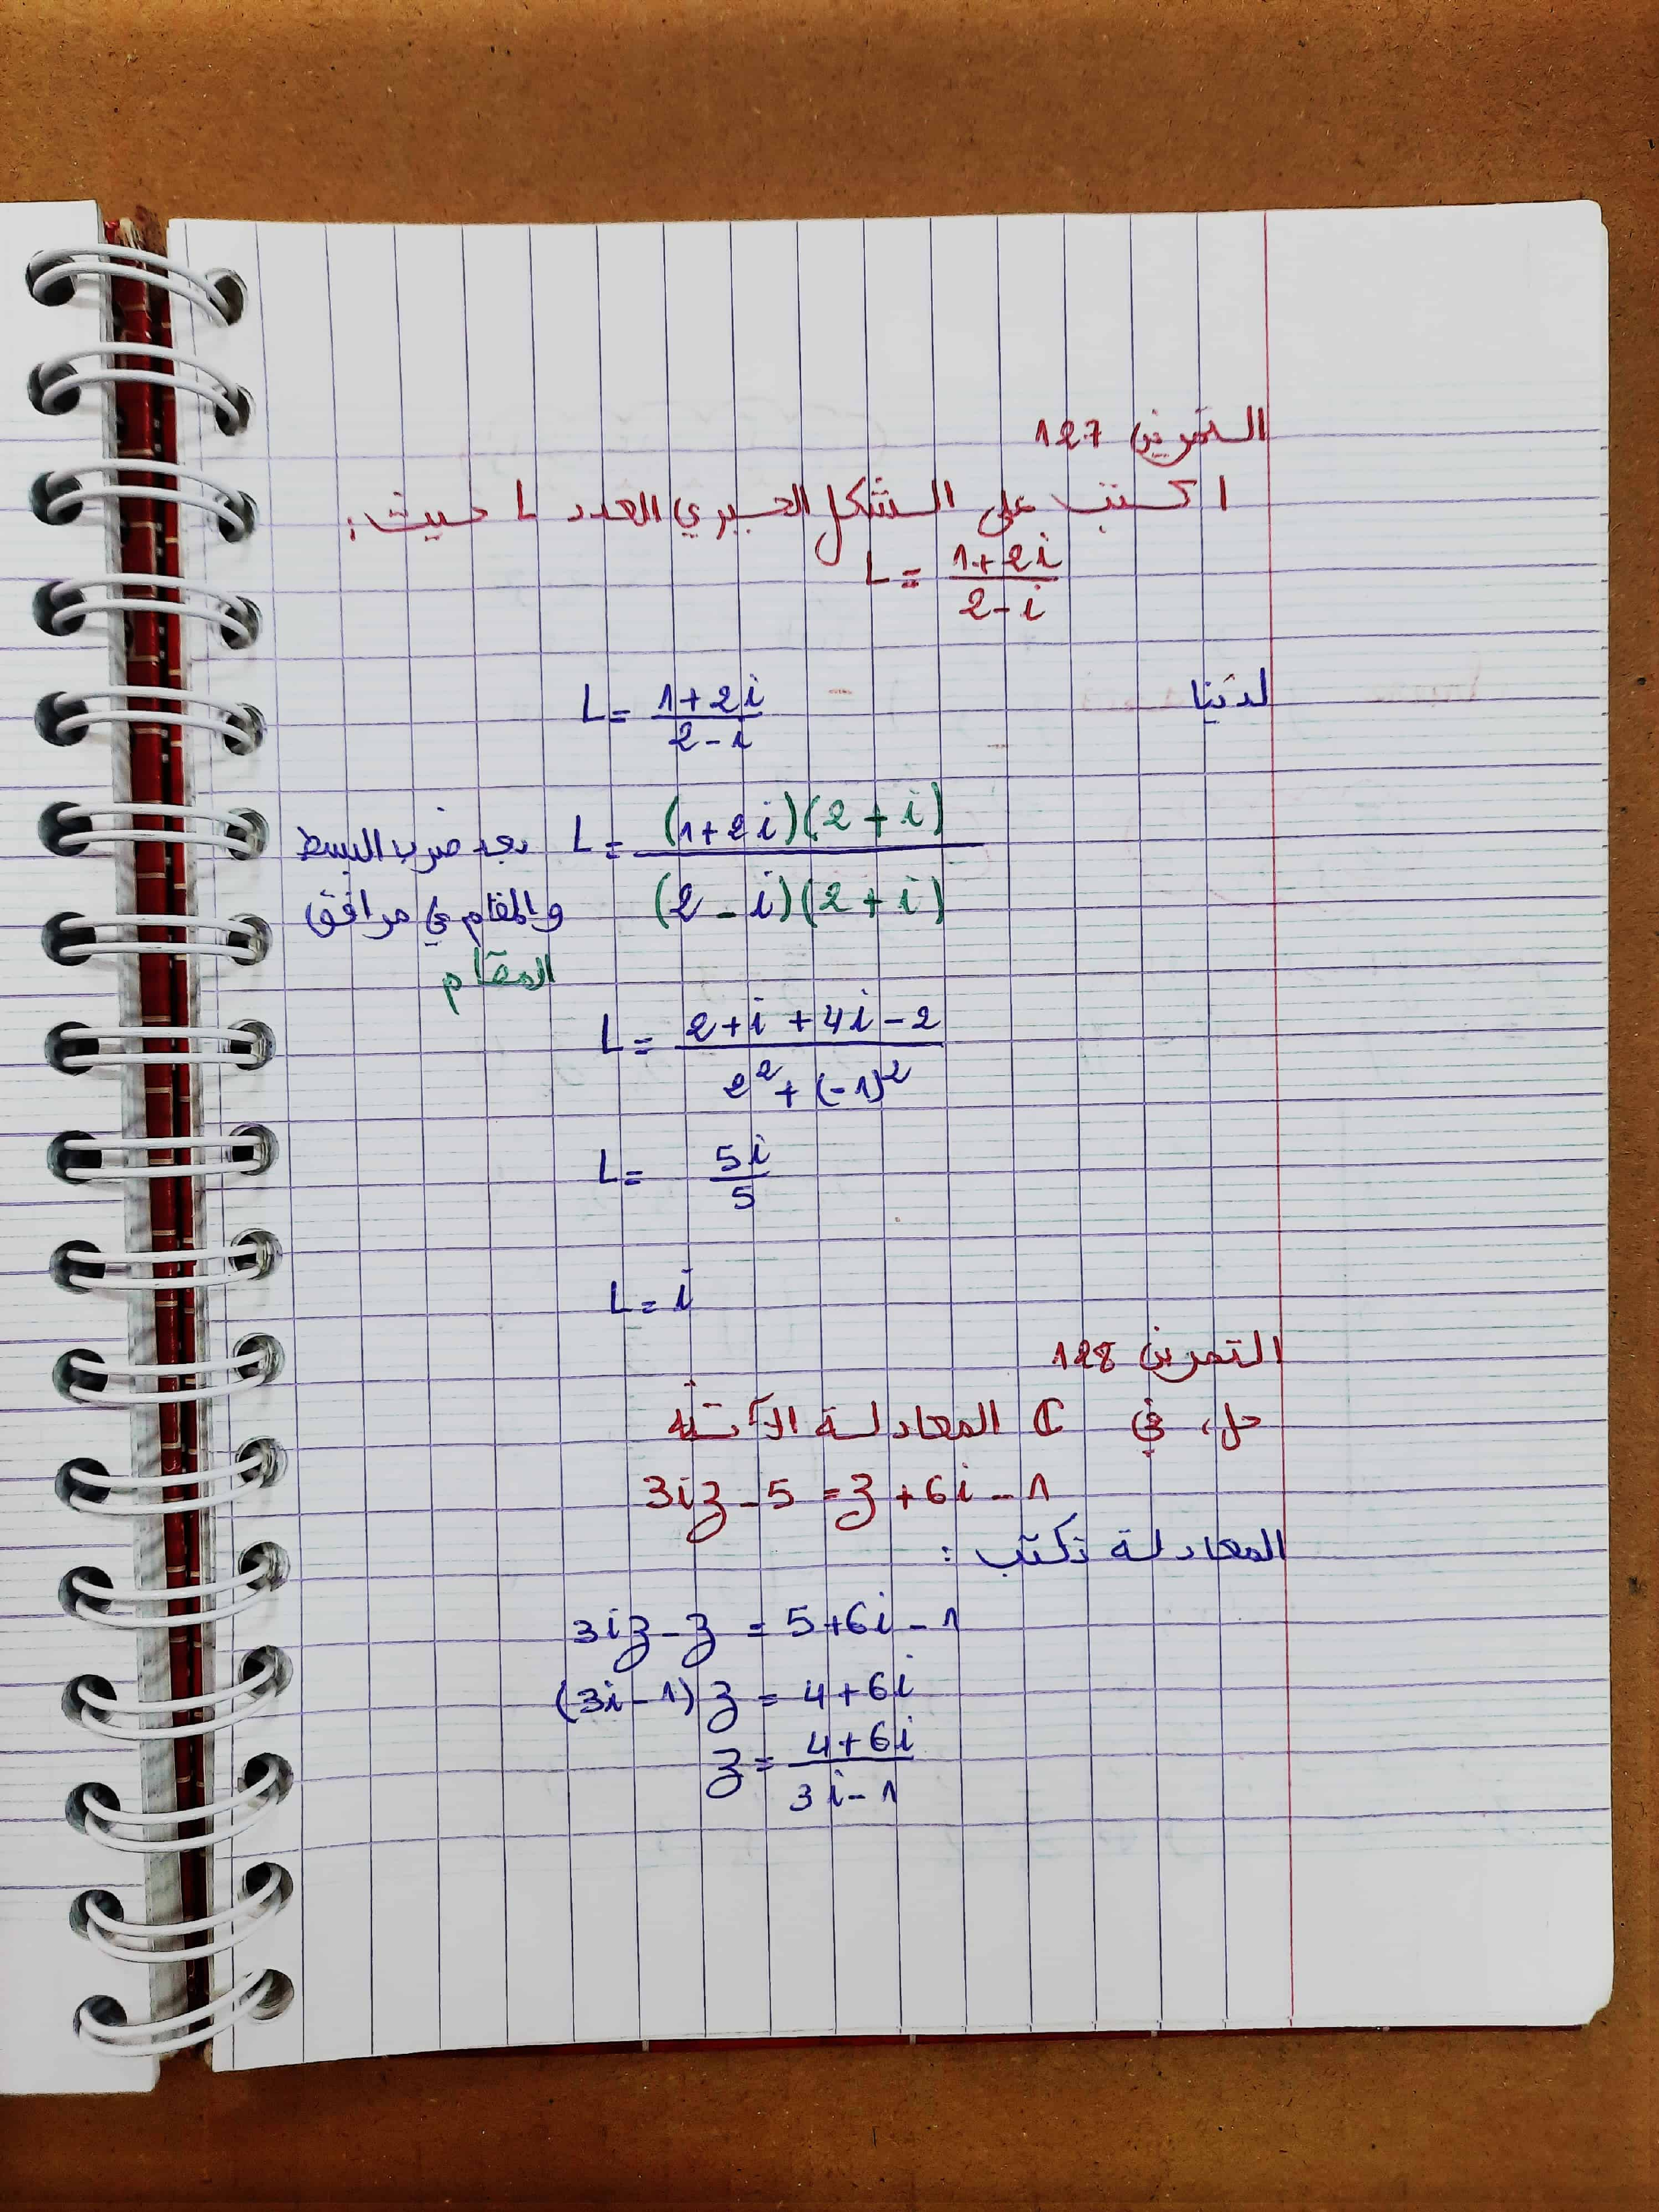 التمرين 127
اكتب على الشكل الجبري العدد L حيث:
L = (1+2i)/(2-i)
لدينا L = (1+2i)/(2-i)
L = ((1+2i)(2+i))/((2-i)(2+i)) بعد ضرب البسط
والمقام في مرافق
المقام
L = (2+i+4i-2)/(2²+(-1)²)
L = 5i/5
L = i
التمرين 128
حل، في ℂ المعادلة الآتية
3iz-5 = z+6i-1
المعادلة تكتب :
3iz-z = 5+6i-1
(3i-1)z = 4+6i
z = (4+6i)/(3i-1)